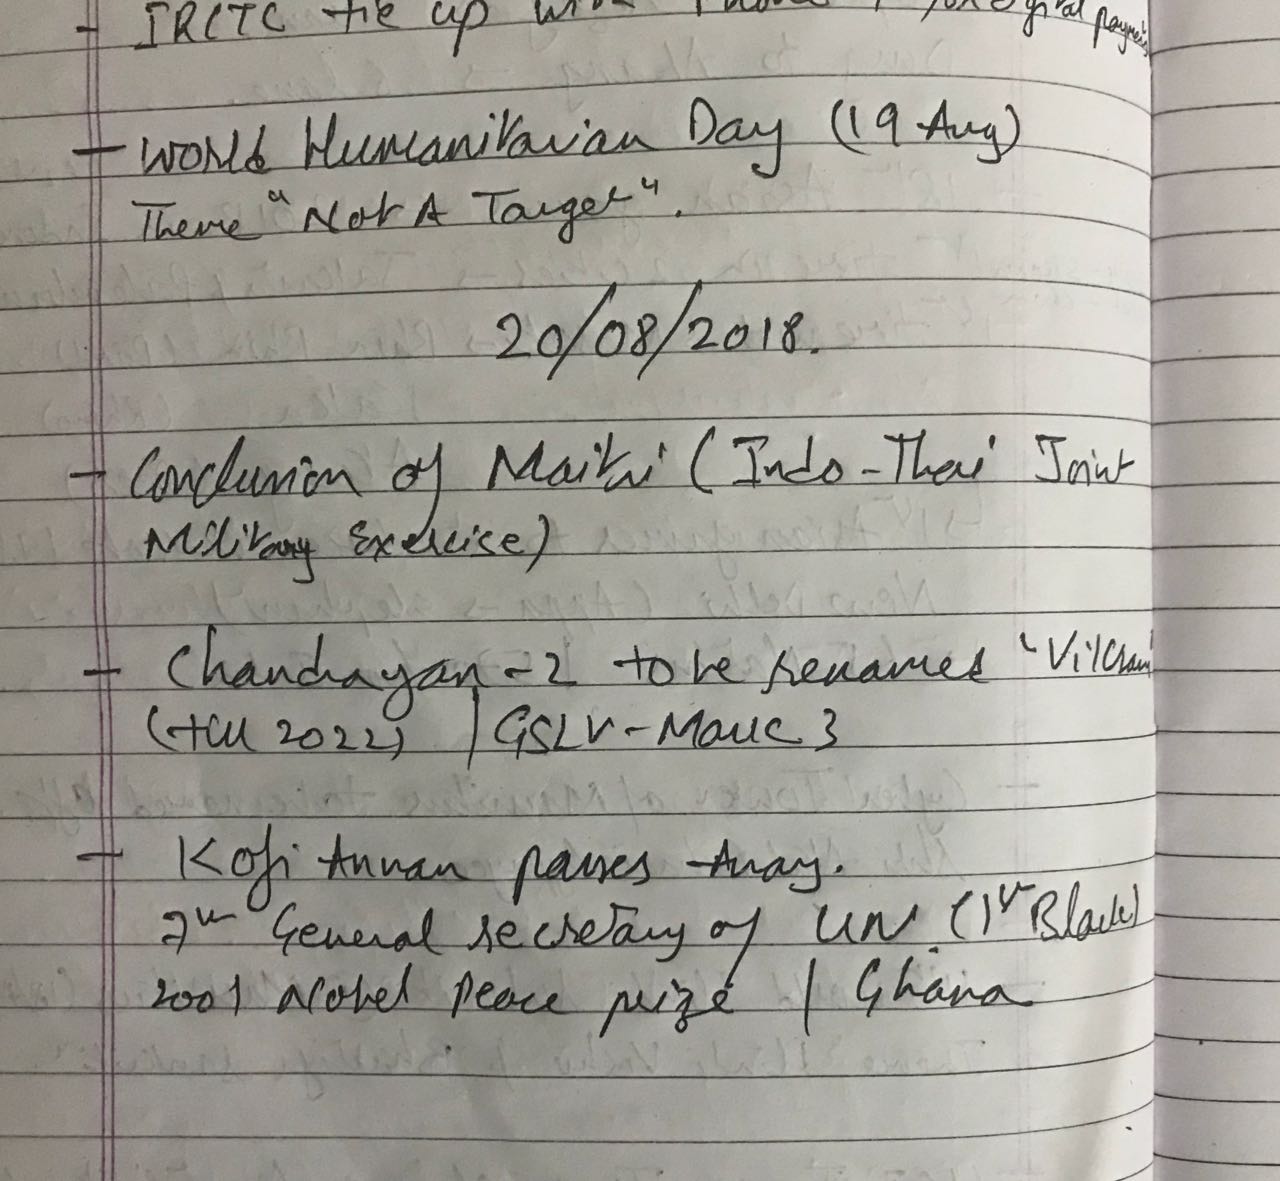 - IRCTC tie up with digital payments
- World Humanitarian Day (19 Aug)
Theme "Not A Target".
20/08/2018.
- Conclusion of Maitri (Indo-Thai Joint
Military Exercise)
- Chandrayan-2 to be renamed 'Vikram
(till 2022) | GSLV-Mark 3
- Kofi Annan passes Away.
7th General secretary of UN. (1st Black)
2001 Nobel Peace prize | Ghana